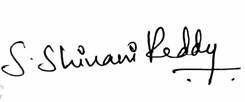 S. Shivani Reddy